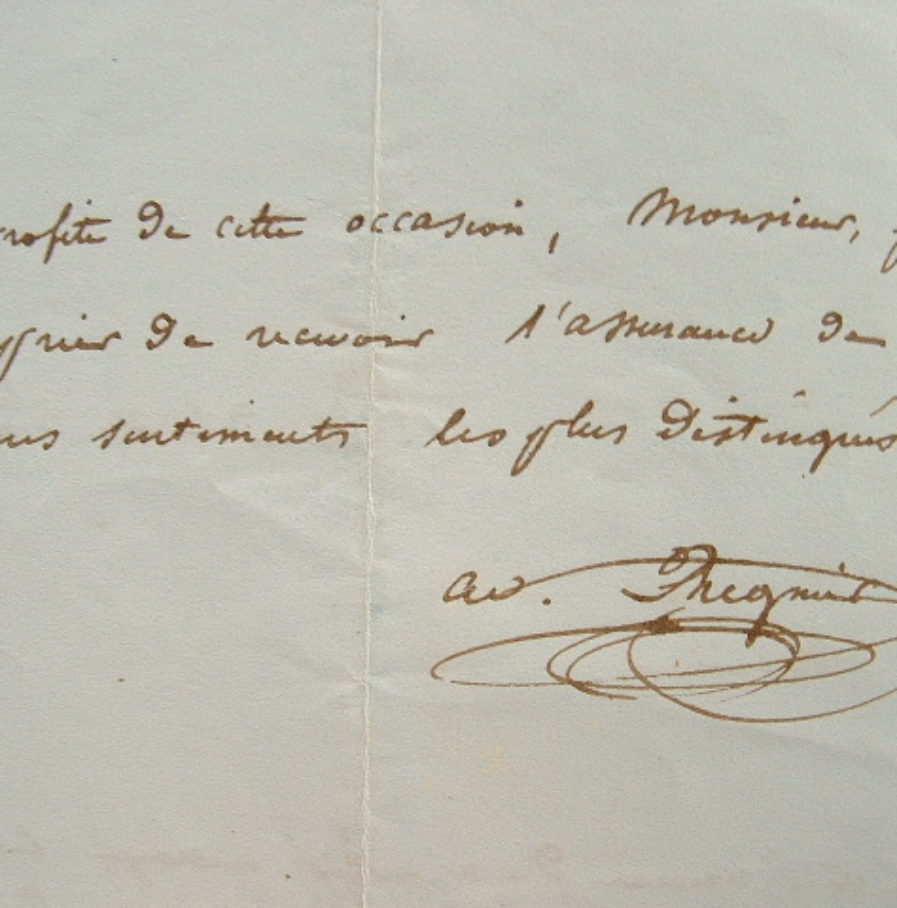 profite de cette occasion, Monsieur,
prier de recevoir l'assurance de
sentiments les plus distingués